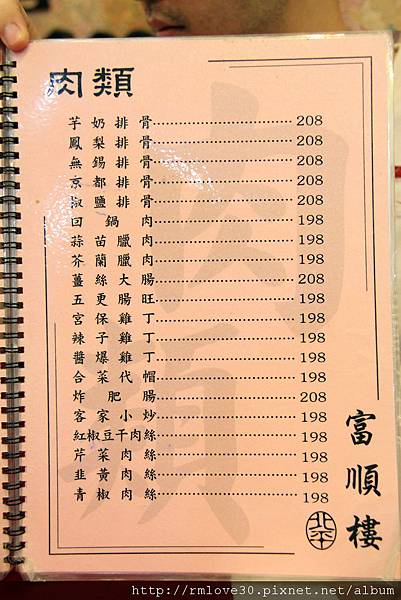 肉類
芋奶排骨 208
鳳梨排骨 208
無錫排骨 208
京都排骨 208
椒鹽排骨 208
回鍋肉 198
蒜苗臘肉 198
芥蘭臘肉 198
薑絲大腸 208
五更腸旺 198
宮保雞丁 198
辣子雞丁 198
醬爆雞丁 198
合菜代帽 198
炸肥腸 208
客家小炒 198
紅椒豆干肉絲 198
芹菜肉絲 198
韭黃肉絲 198
青椒肉絲 198
富順樓
北平
肉類
http://rmlove30.pixnet.net/album